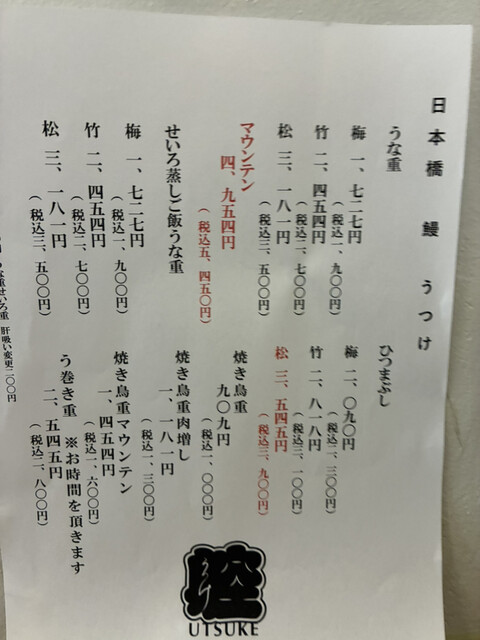 日本橋 鰻 うつけ
うな重
梅 一、七二七円
（税込一、九〇〇円）
竹 二、四五四円
（税込二、七〇〇円）
松 三、一八一円
（税込三、五〇〇円）
マウンテン
四、九五四円
（税込五、四五〇円）
せいろ蒸しご飯うな重
梅 一、七二七円
（税込一、九〇〇円）
竹 二、四五四円
（税込二、七〇〇円）
松 三、一八一円
（税込三、五〇〇円）
ひつまぶし
梅 二、〇九〇円
（税込二、三〇〇円）
竹 二、八一八円
（税込三、一〇〇円）
松 三、五四五円
（税込三、九〇〇円）
焼き鳥重
九〇九円
（税込一、〇〇〇円）
焼き鳥重肉増し
一、一八一円
（税込一、三〇〇円）
焼き鳥重マウンテン
一、四五四円
（税込一、六〇〇円）
う巻き重 ※お時間を頂きます
二、五四五円
（税込二、八〇〇円）
重せいろ重 肝吸い変更二〇〇円
UTSUKE